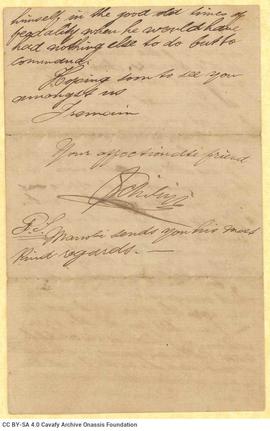 himself in the good old times of
feodality when he would have
had nothing else to do but to
command.
Hoping soon to see you
amongst us
I remain
Your affectionate friend
P.S.
Manoli sends you his most
kind regards. —
CC BY-SA 4.0 Cavafy Archive Onassis Foundation